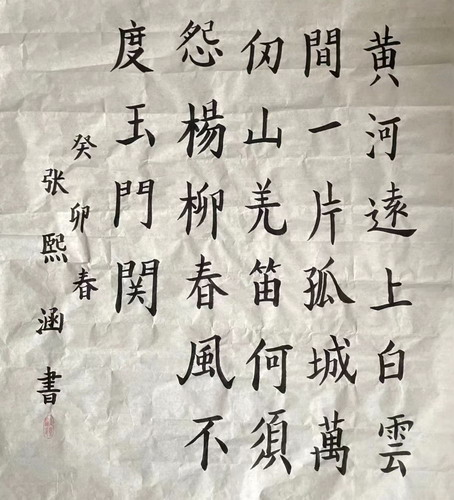 黄河遠上白雲
間一片孤城萬
仞山羌笛何須
怨楊柳春風不
度玉門関
癸卯春
张熙涵書